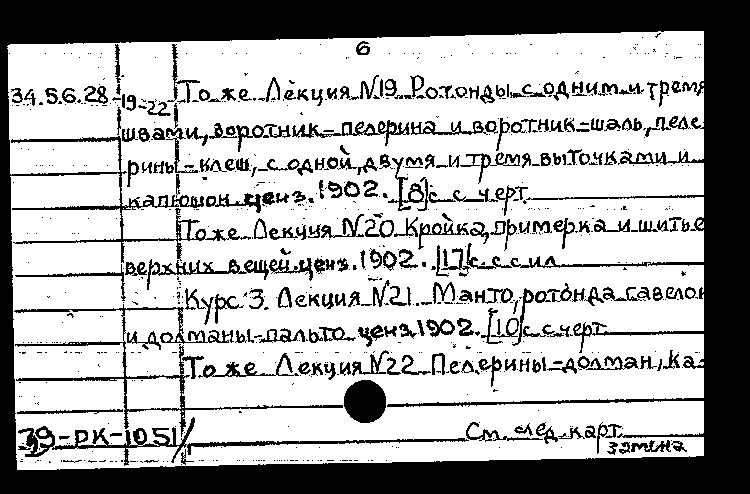 6
34.5.6.28 19-22 То же Лекция N19 Ротонды с одним и тремя
швами, воротник-пелерина и воротник-шаль, пеле-
рины-клеш, с одной, двумя и тремя выточками и
капюшон ценз. 1902. [8]с с черт.
То же Лекция N20 Кройка, примерка и шитье
верхних вещей ценз. 1902. [17]с с ил
Курс 3. Лекция N21 Манто, ротонда гавелок
и долманы-пальто ценз 1902. [10]с с черт
То же Лекция N22 Пелерины-долман, ка-
39-РК-1051/ См. след. карт.